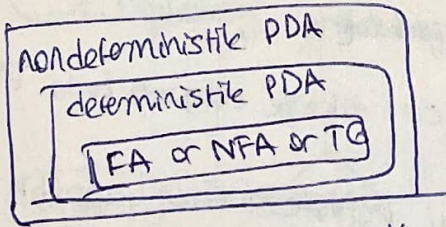 nondeterministik PDA
deterministik PDA
FA or NFA or TG